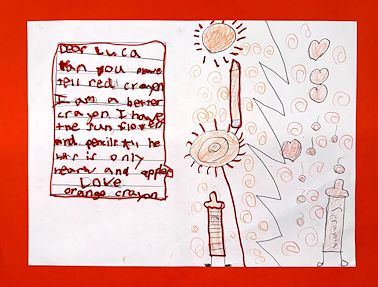 Dear Luca
Can you please
tell red crayon
I am a better
crayon I have
the sun flowers
and pencils tell he
has is only
hearts and apples
Love
orange crayon